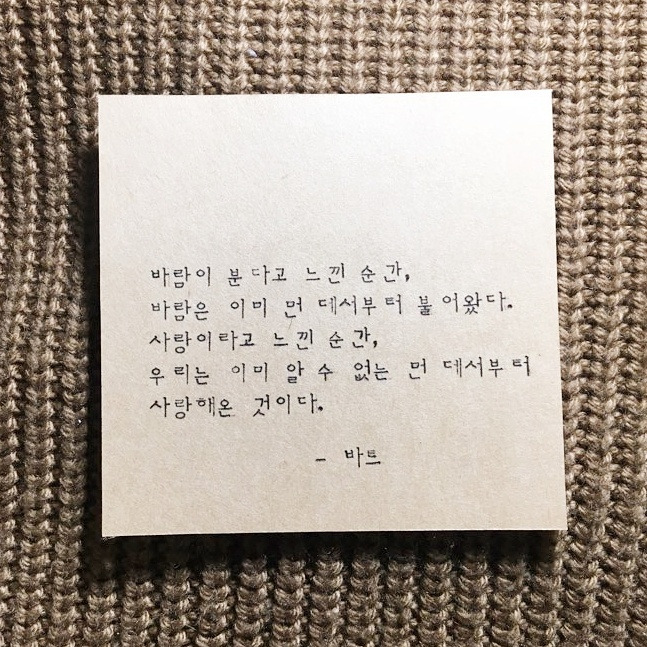 바람이 분다고 느낀 순간,
바람은 이미 먼 데서부터 불어왔다.
사랑이라고 느낀 순간,
우리는 이미 알 수 없는 먼 데서부터
사랑해온 것이다.
- 바트